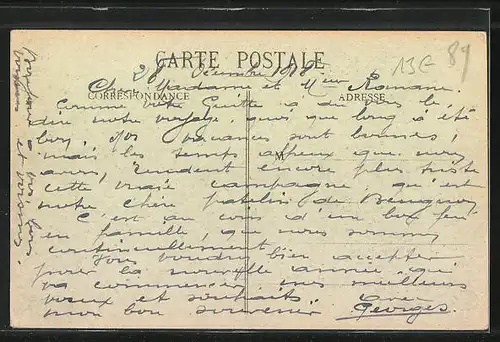 CARTE POSTALE
CORRESPONDANCE
ADRESSE
13E 89
28 Décembre 1918
Chère Madame et Mr Romane.
Comme votre a du vous le
dire notre voyage, quoi que long a été
bon, nos vacances sont bonnes,
mais les temps affreux que nous
avons, rendent encore plus triste
cette vraie campagne, qu'est
notre cher patelin de
C'est au coin d'un bon feu
en famille, que nous sommes
continuellement.
Vous voudrez bien accepter
pour la nouvelle année qui
va commencer, mes meilleurs
vœux et souhaits. avec
mon bon souvenir Georges.